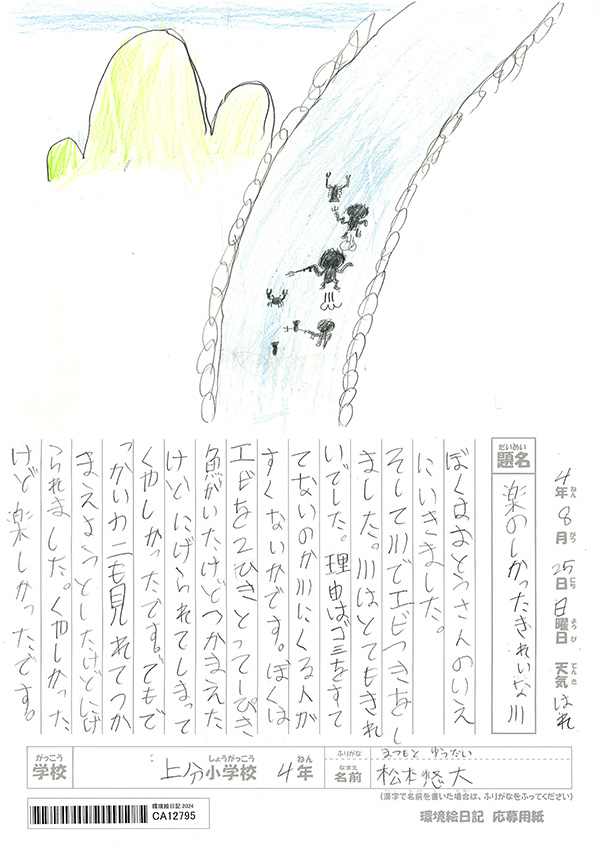 4年ねん8月がつ25日にち日曜日ようび 天気てんき はれ
題名だいめい 楽のしかったきれいな川
ぼくはおとうさんのいえ
にいきました。
そして川でエビつきをし
ました。川はとてもきれ
いでした。理由はゴミをすて
てないのか川にくる人が
すくないかです。ぼくは
エビを2ひきとって一ぴき
魚がいたけどつかまえた
けどにげられてしまって
くやしかったです。でもで
っかいカニも見れてつか
まえようとしたけどにげ
られました。くやしかった
けど楽しかったです。
学校がっこう 上分小学校しょうがっこう 4年ねん
ふりがな まつもと ゆうだい
名前なまえ 松本悠大
(漢字で名前を書いた場合は、ふりがなをふってください)
環境絵日記2024
CA12795
環境絵日記 応募用紙